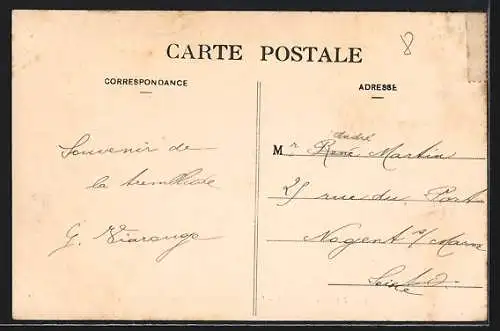 8
CARTE POSTALE
CORRESPONDANCE
ADRESSE
Souvenir de
la tremblade
G.
André
Mr René Martin
25 rue du Port
Nogent s/ Marne
Seine